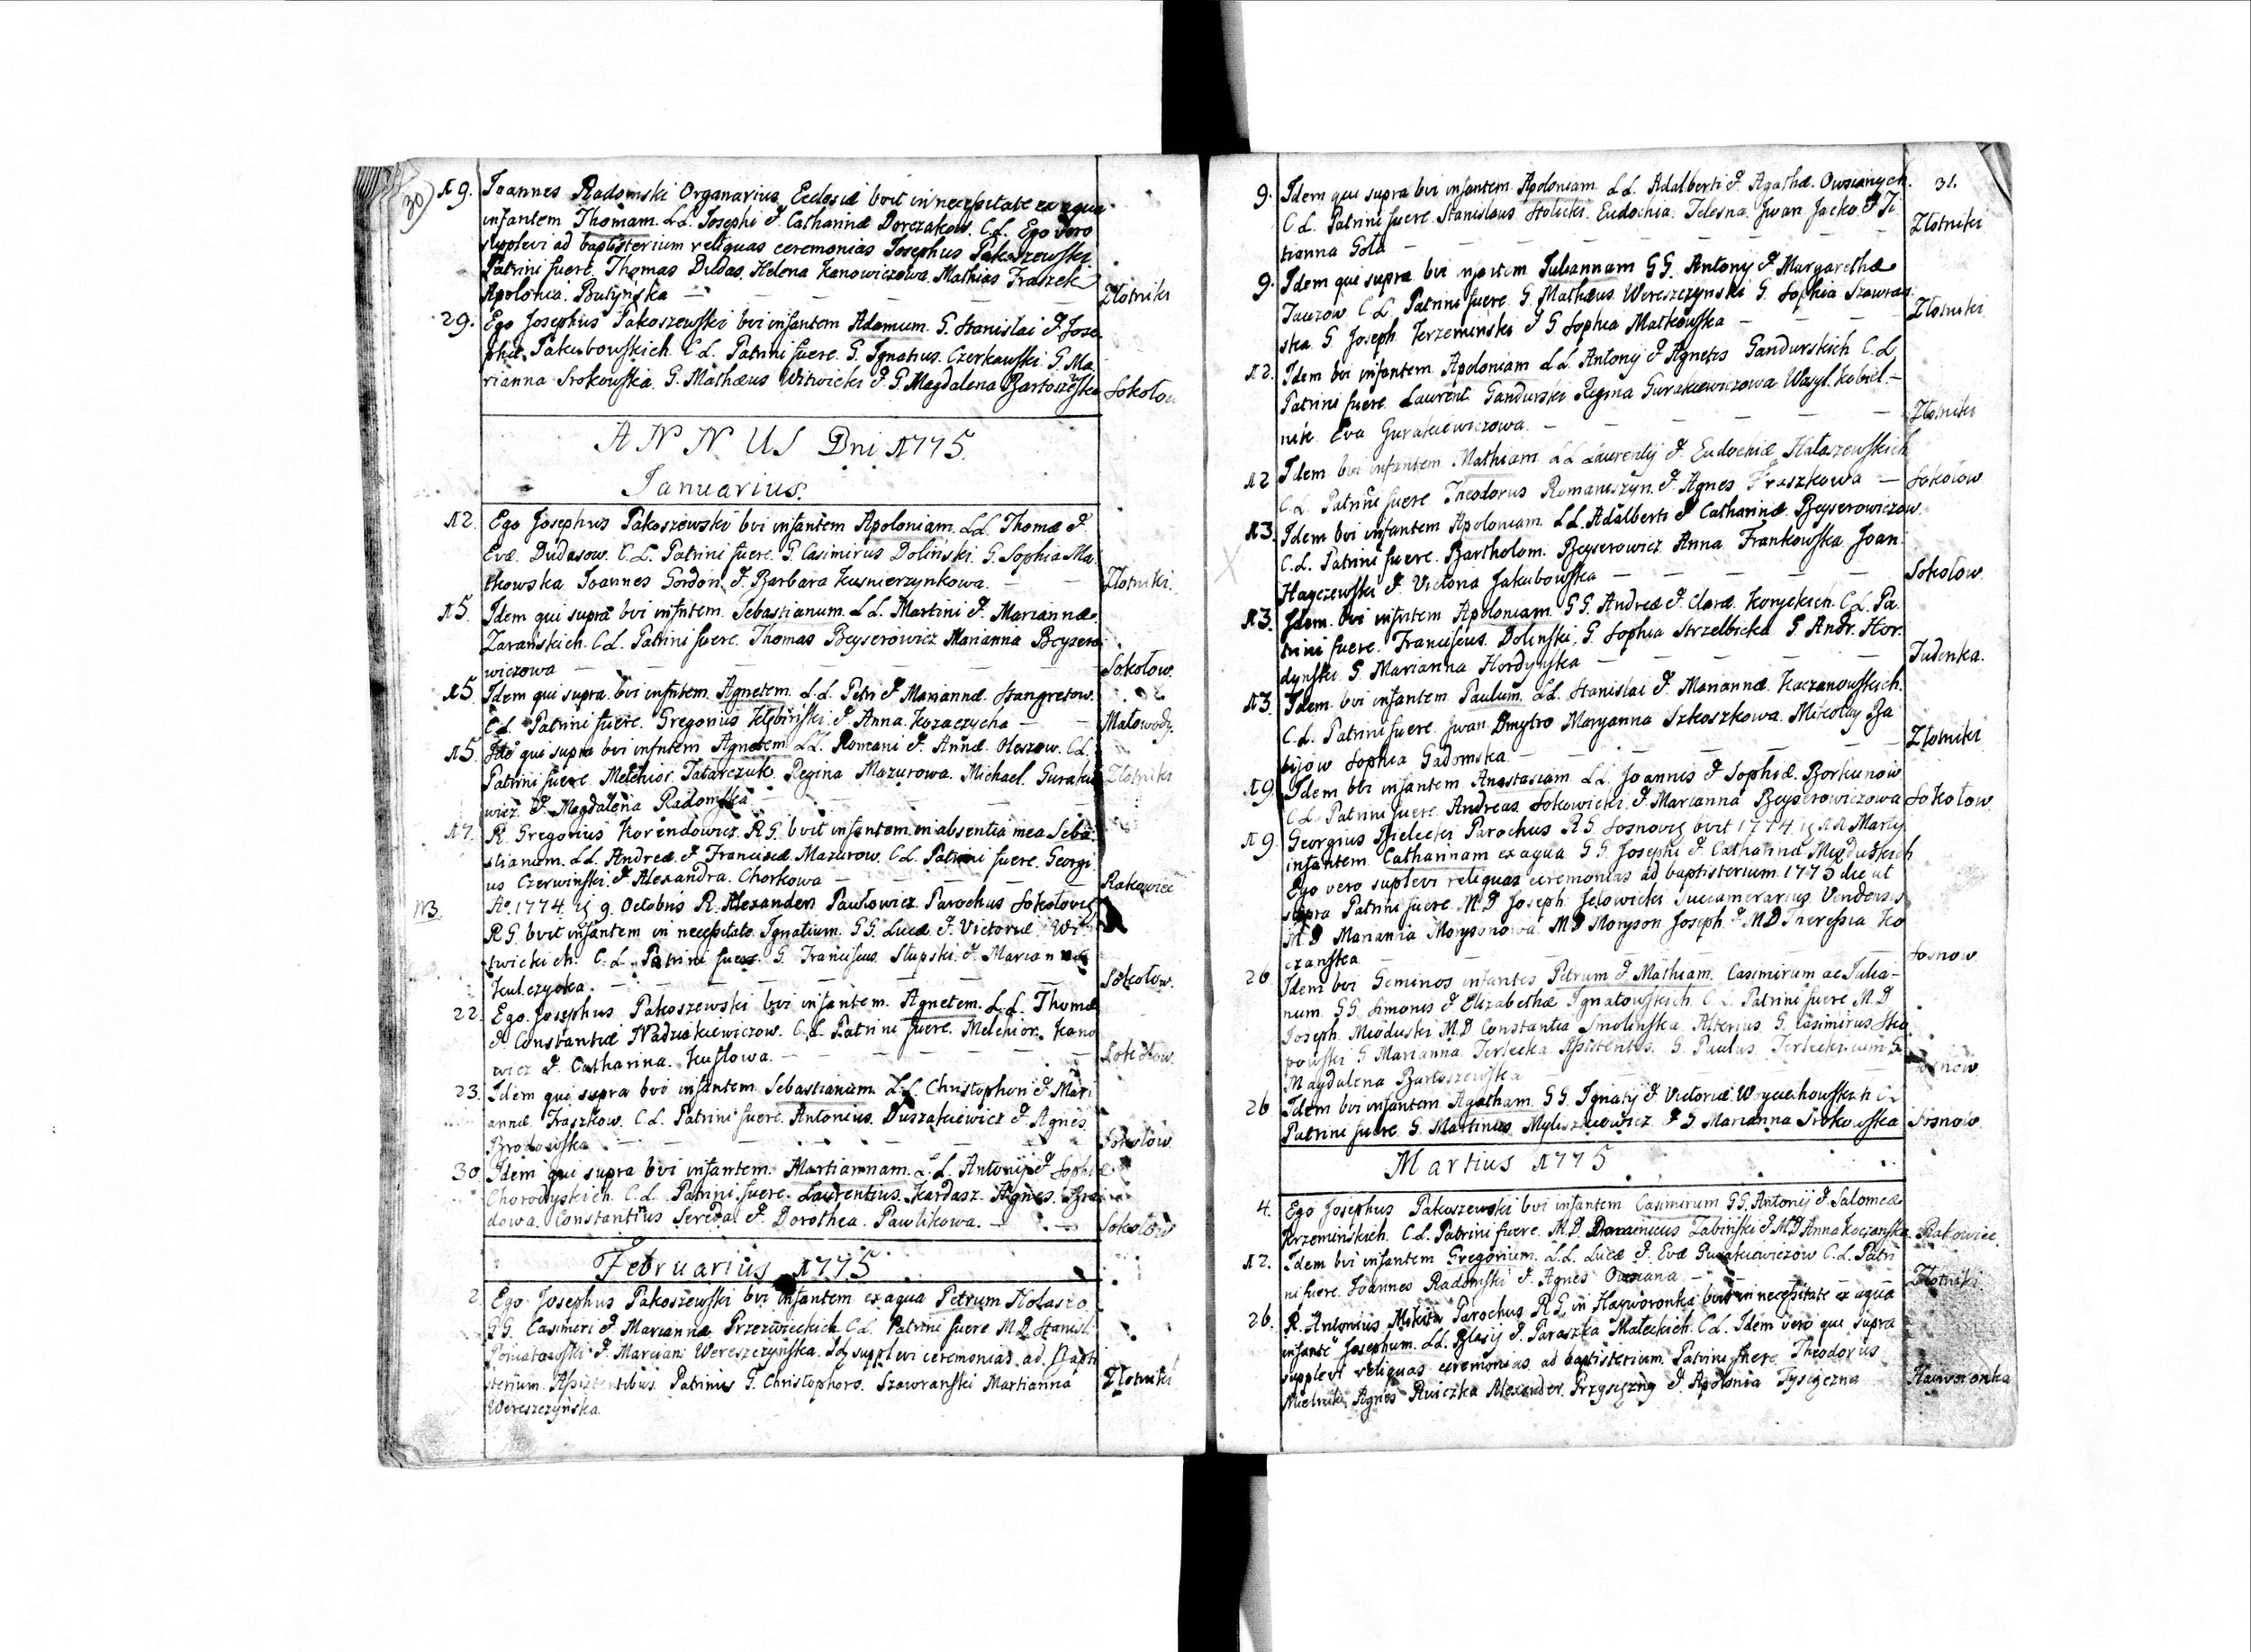 30
19. Joannes Radomski Organarius Ecclesiæ bvit in necessitate ex aqua
infantem Thomam. LL. Josephi & Catharinæ Dorczakow. C.L. Ego vero
supplevi ad baptisterium reliquas ceremonias Josephus Pakoszewski
Patrini fuere. Thomas Dudas. Helena Kanowiczowa. Mathias Fraszek
Apolonia. Butyńska — Złotniki
29. Ego Josephus Pakoszewski bvi infantem Adamum. G. Stanislai & Jose
phæ Jakubowskich. C.L. Patrini fuere. G. Ignatius. Czerkawski. G. Ma
rianna Srokowska. G. Mathæus Witwicki & G. Magdalena Bartoszewska Sokołow
ANNUS Dni 1775.
Januarius.
12. Ego Josephus Pakoszewski bvi infantem Apoloniam. LL. Thomæ &
Evæ. Dudasow. C.L. Patrini fuere. G. Casimirus Doliński. G. Sophia Ma
tkowska Joannes Gordon. & Barbara Kusnierzynkowa. — Złotniki.
15. Idem qui supra bvi infntem. Sebastianum. LL. Martini & Mariannæ
Zarańskich. C.L. Patrini fuere. Thomas Beyserowicz Marianna Beysero
wiczowa — Sokołow.
15 Idem qui supra bvi infntem. Agnetem. L.L. Petri & Mariannæ. Stangretow.
C.L. Patrini fuere. Gregorius & Anna. Kozaczycha — Małowody.
15. Idē qui supra bvi infntem Agnetem LL. Romani & Annæ. Oleszow. C.L.
Patrini fuere. Melchior. Tatarczuk. Regina Mazurowa. Michael. Gurakie
wicz & Magdalena Radomska — Złotniki
17. R. Gregorius Korendowicz. R.G. bvit infantem in absentia mea Seba
stianum. LL. Andreæ & Franciscæ Mazurow. C.L. Patrini fuere. Georgi
us Czerwinski. & Alexandra. Chorkowa — Rakowiec
N3. A° 1774. 9. Octobris R. Alexander Pawłowicz. Parochus Sokołovi
R.G. bvit infantem in necessitate Ignatium. GG. Lucæ. & Victoriæ. Wi
twickich. C.L. Patrini fuere. G. Franciscus Słupski. & Marianna
Kulczycka. — Sokołow.
22. Ego. Josephus Pakoszewski bvi infantem. Agnetem. L.L. Thomæ
& Constantiæ Nadziakiewiczow. C.L. Patrini fuere. Melchior. Kano
wicz & Catharina. Kusłowa. — Sokołow.
23. Idem qui supra bvi infantem Sebastianum. L.L. Christophori & Mari
annæ. Fraszkow. C.L. Patrini fuere. Antonius. Duszakiewicz & Agnes.
Brodowska — Sokołow.
30. Idem qui supra bvi infantem. Martiannam. L.L. Antonij & Sophiæ
Chorodyskich. C.L. Patrini fuere. Laurentius. Kardasz. Agnes.
dowa. Constantinus Sereda. & Dorothea. Pawlikowa. — Sokołow
Februarius 1775.
2. Ego. Josephus Pakoszewski bvi infantem ex aqua Petrum
GG. Casimiri & Mariannæ Przezwieckich C.L. Patrini fuere M.D. Stanisl.
Poniatowski & Wereszczyńska. supplevi ceremonias ad Bapti
sterium. Assistentibus Patrinis G. Christophoro. Szawranski Martianna Złotniki
Wereszczyńska.
31.
9. Idem qui supra bvi infantem. Apoloniam. LL. Adalberti & Agathæ. Owsianych.
C.L. Patrini fuere. Stanislaus Stolicki. Eudochia. Telesna. Jwan Jacko & Ti Złotniki
tianna Gola —
9. Idem qui supra bvi infantem Juliannam GG. Antonij & Margarethæ
Taurow C.L. Patrini fuere. G. Mathæus Wereszczynski G. Sophia Szawran Złotniki
ska. G. Joseph Krzeminski & G. Sophia Matkowska —
12. Idem bvi infantem Apoloniam LL. Antonij & Agnetis Gandurskich C.L.
Patrini fuere. Laurenti Gandurski Regina Gurakiewiczowa Wasyl. Kobiel— Złotniki
nik Eva Gurakiewiczowa. —
12 Idem bvi infantem Mathiam. LL. Laurentij & Eudochiæ Hałaszewskich
C.L. Patrini fuere Theodorus Romaniszyn. & Agnes Fraszkowa — Sokołow
13. Idem bvi infantem Apoloniam. LL. Adalberti & Catharinæ. Beyserowiczow.
C.L. Patrini fuere. Bartholom: Beyserowicz Anna Frankowska Joan
Hayczewski & Victoria Jakubowska — Sokołow.
13. Idem bvi infntem Apoloniam. GG. Andreæ & Claræ. Koryckich. C.L. Pa
trini fuere. Franciscus. Dolinski. G. Sophia Strzelbicka G. Andr. Hor
dynski G. Marianna Hordyńska — Judenka.
13. Idem. bvi infantem Paulum. LL. Stanislai & Mariannæ. Kaczanowskich.
C.L. Patrini fuere Jwan Dmytro Maryanna Szkoszkowa Mikołay Ba Złotniki
bijow Sophia Gadomska —
19. Idem bvi infantem Anastasiam LL. Joannis & Sophiæ. Borkunow
C.L. Patrini fuere Andreas Sokowicki & Marianna Beyserowiczowa Sokołow
19. Georgius Bielecki Parochus R.G. Sosnovi bvit 1774. 11 Martij
infantem. Catharinam ex aqua GG. Josephi & Catharinæ Mioduskich
Ego vero suplevi reliquas ceremonias ad baptisterium 1775 die ut
supra Patrini fuere. M.D. Joseph Jelowicki Succamerarius Vendensis
M.D. Marianna Morysonowa. M.D. Moryson Joseph & M.D. Theressia Ko
czanska — Sosnow
26 Idem bvi Geminos infantes Petrum & Mathiam. Casimirum ac Julia—
num GG. Simonis & Elizabethæ Ignatowskich. C.L. Patrini fuere M.D.
Joseph. Mioduski M.D. Constantia Smolinska. Alterius G. Casimirus Ste
powski G. Marianna Terlecka Assistentes. G. Paulus Terlecki cum G.
Magdalena Bartoszewska — Sosnow
26 Idem bvi infantem Agatham GG. Ignatij & Victoriæ Woyciechowskich C.L.
Patrini fuere G. Martinus Myliszkiewicz & G. Marianna Srokowska Sosnow.
Martius 1775
4. Ego Josephus Pakoszewski bvi infantem Casimirum GG. Antonij & Salomeæ
Krzemińskich. C.L. Patrini fuere. M.D. Dominicus Zabinski & M.D. Anna Koczanska. Rakowiec.
12. Idem bvi infantem Gregorium. L.L. Lucæ & Evæ Gurakiewiczow C.L. Patri
ni fuere Joannes Radomski & Agnes Owsiana — Złotniki
26. R. Antonius Mikita Parochus R.G. in Hayworonka bvit in necessitate ex aqua
infantē Josephum. LL. Blasij & Paraszka Małeckich. C.L. Idem vero qui supra
supplevi reliquas ceremonias ad baptisterium. Patrini fuere Theodorus
Mielnik. Agnes Alexander. & Apolonia Hayworonka